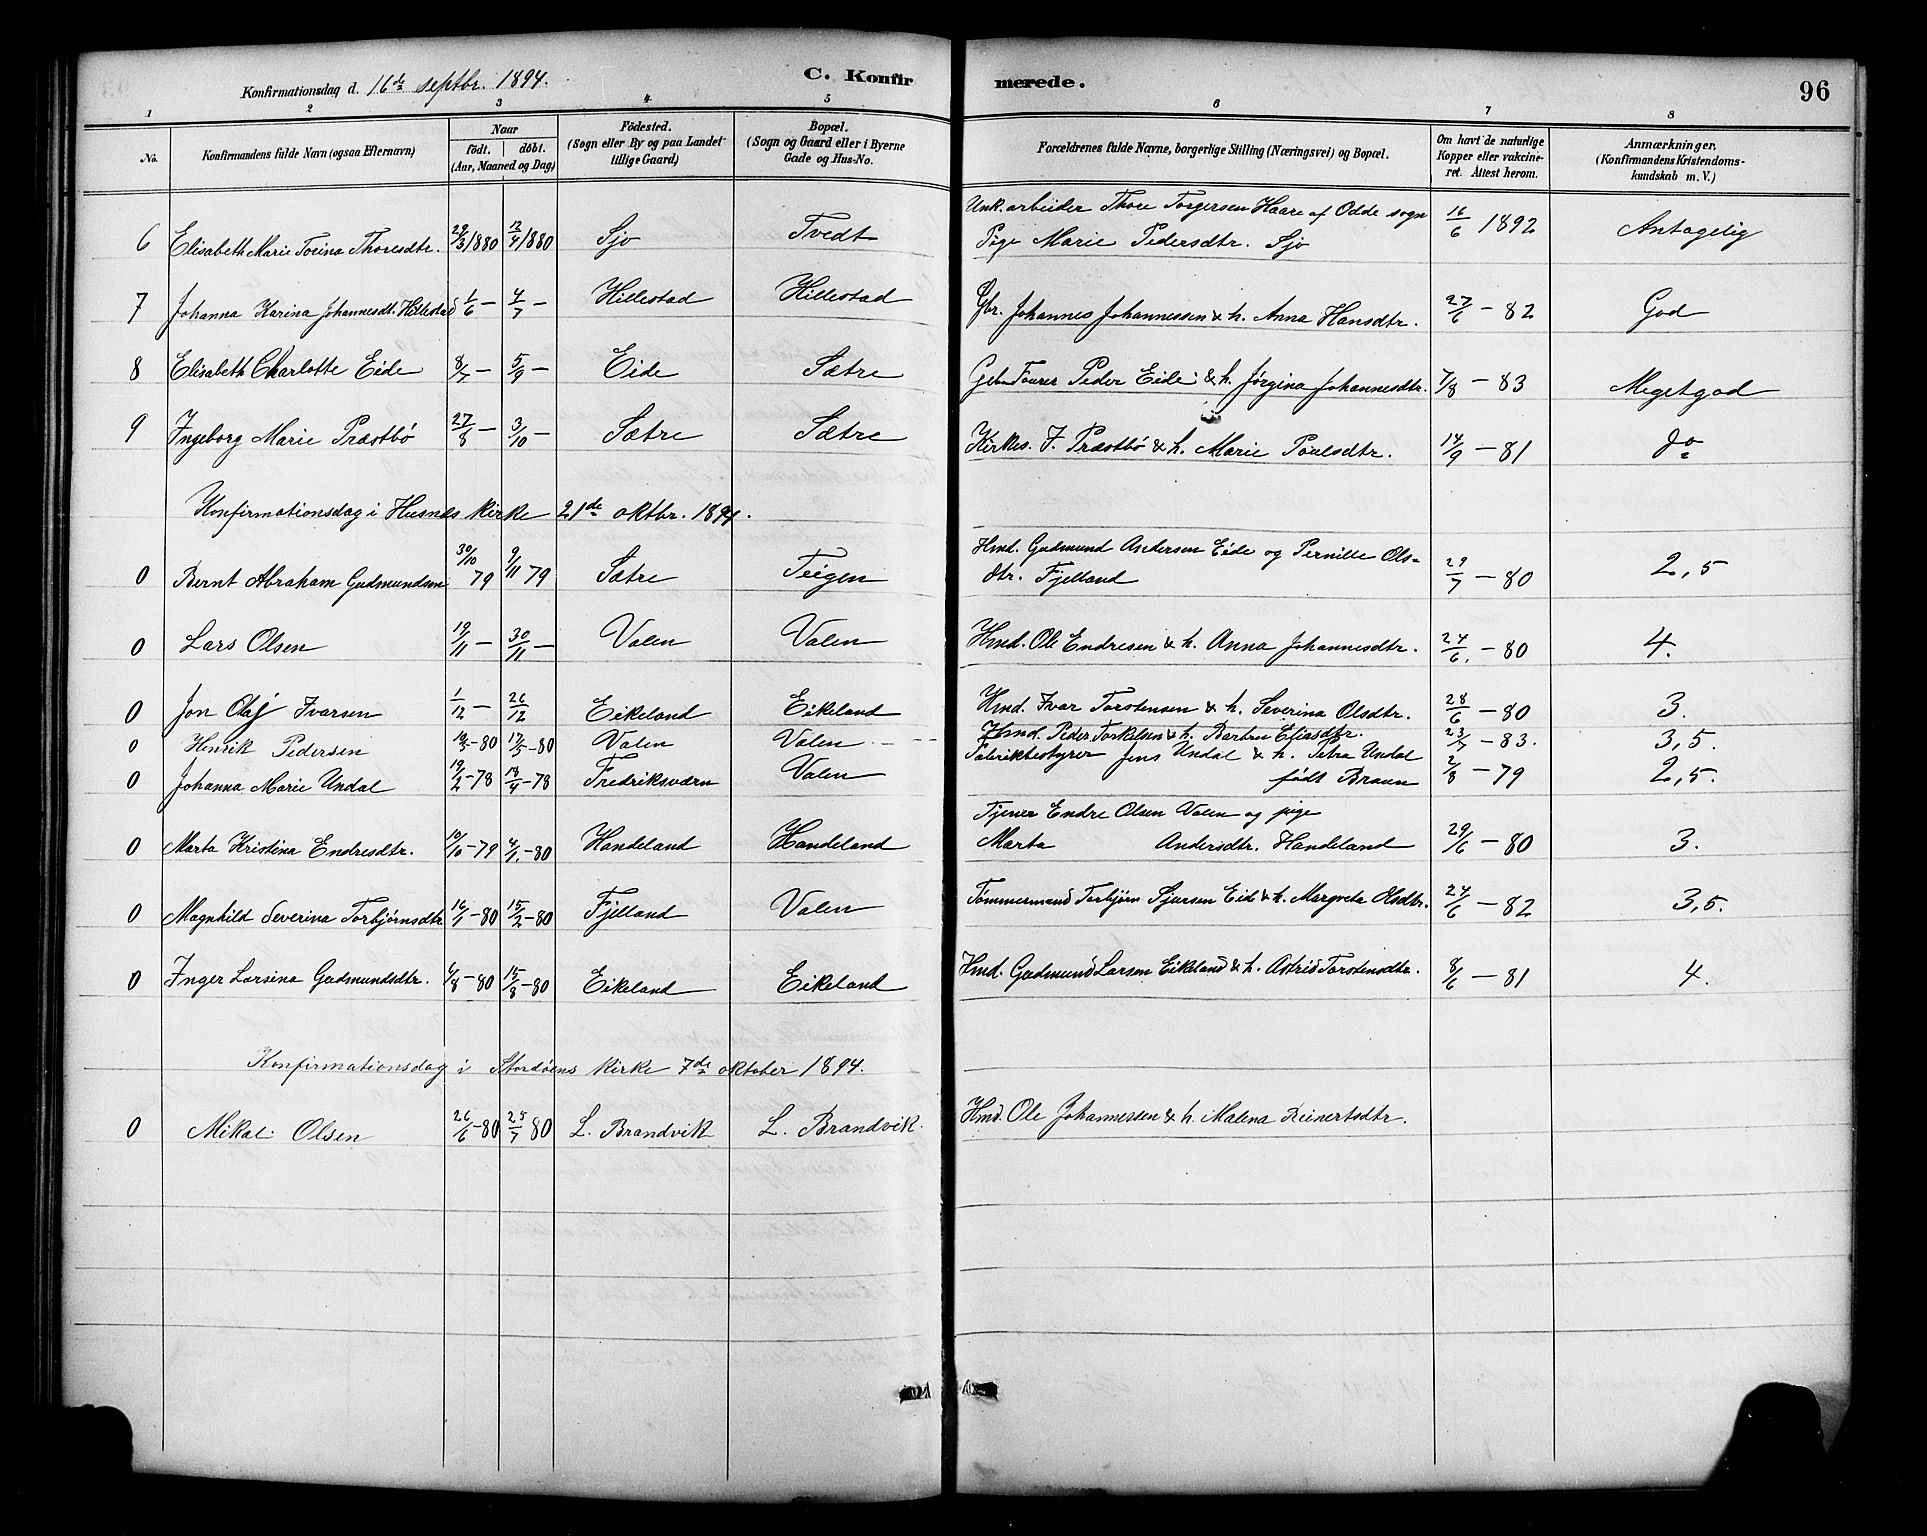 Konfirmationsdag d. 16de septbr. 1894.
C. Konfirmerede.
96
1 2 3 4 5 6 7 8
No.
Konfirmandens fulde Navn (ogsaa Efternavn)
Naar
födt. döbt.
(Aar, Maaned og Dag)
Födested.
(Sogn eller By og paa Landet
tillige Gaard)
Bopæl.
(Sogn og Gaard eller i Byerne
Gade og Hus-No.
Forældrenes fulde Navne, borgerlige Stilling (Næringsvei) og Bopæl.
Om havt de naturlige
Kopper eller vakcine-
ret. Attest herom.
Anmærkninger.
(Konfirmandens Kristendoms-
kundskab m. V.)
6 Elisabeth Marie Torina Thoresdtr. 29/3 1880 12/4 1880 Sjo Tvedt Unk. arbeider Thore Torgersen Haare af Odde sogn
Pige Marie Pedersdtr. Sjo 16/6 1892 Antagelig
7 Johanna Karina Johannesdt. Hillestad 1/6 — 4/7 — Hillestad Hillestad Gbr. Johannes Johannessen & h. Anna Hansdtr. 27/6 — 82 God
8 Elisabeth Charlotte Eide 8/7 — 5/9 — Eide Sætre Peder Eide & h. Jørgina Johannesdtr. 7/8 — 83 Megetgod
9 Ingeborg Marie Præstbø 27/8 — 3/10 — Sætre Sætre Kirkes. J. Præstbø & h. Marie Poulsdtr. 14/9 — 81 do
Konfirmationsdag i Husnes kirke 21de oktbr. 1894.
0 Bernt Abraham Gudmundsen 30/10 79 9/11 79 Sætre Teigen Hmd. Gudmund Andersen Eide og Pernille Ols-
dtr. Fjelland 29/7 — 80 2,5
0 Lars Olsen 19/11 — 30/11 — Valen Valen Hmd. Ole Endresen & h. Anna Johannesdtr. 24/6. — 80 4.
0 Jon Olaf Ivarsen 1/12 — 26/12 Eikeland Eikeland Hmd. Ivar Torstensen & h. Severina Olsdtr. 28/6 — 80 3.
0 Henrik Pedersen — 80 17/5 — 80 Valen Valen Hmd. Peder Torkelsen & h. Eliasdtr. 23/7 — 83. 3,5.
0 Johanna Marie Undal 19/2 — 78 18/4 — 78 Fredriksværn Valen Fabrikbestyrer Jens Undal & h. Petra Undal
født Braun 2/8 — 79 2,5.
0 Marta Kristina Endresdtr. 10/10 — 79 4/1. — 80 Handeland Handeland Tjener Endre Olsen Valen og pige
Marta Andersdtr. Handeland 29/6 — 80 3.
0 Magnhild Severina Torbjørnsdtr 16/1 — 80 15/2 — 80 Fjelland Valen Tømmermand Torbjørn Sjursen Eide & h. Margreta Olsdtr. 24/6 — 82 3,5.
0 Inger Larsina Gudmundsdtr. 6/8 — 80 15/8 — 80 Eikeland Eikeland Hmd. Gudmund Larsen Eikeland & h. Astrid Torstensdtr. 8/6 — 81 4.
Konfirmationsdag i Stordøens kirke 7de oktober 1894.
0 Mikal Olsen 26/6 — 80 25/7 80 L. Brandvik L. Brandvik. Hmd. Ole Johannessen & h. Malena Reinertsdtr.